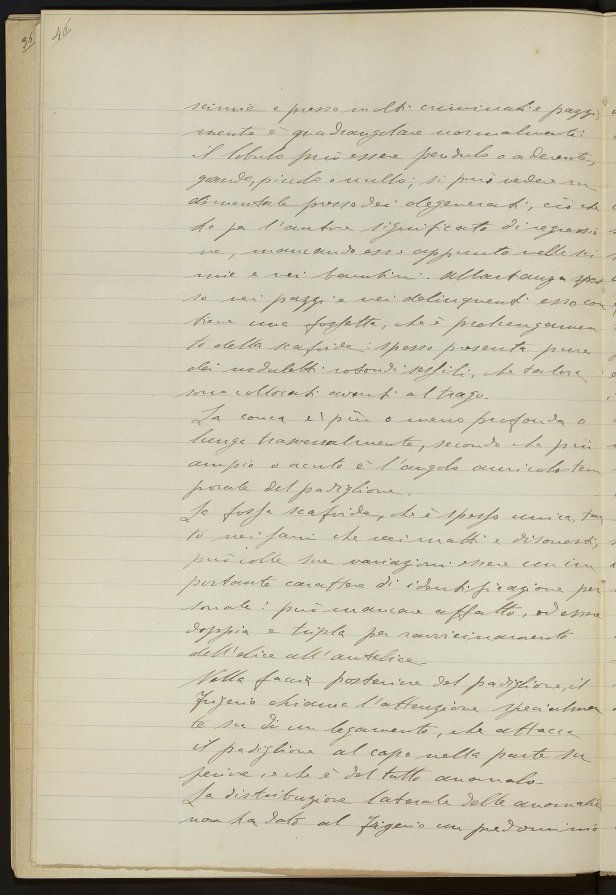 36
46
scimie e presso molti criminali e pazzi;
mento è quadrangolare normalmente:
il lobulo può essere pendulo o aderente,
grande, piccolo o nullo; si può vedere ru
dimentale presso dei degenerati, ciò che
ha per l'autore significato di regressio
ne, mancando esso appunto nelle sci
mie e nei bambini. Abbastanza spes
so nei pazzi e nei delinquenti esso con
tiene una fossetta, che è prolungamen
to della scafoide: spesso presenta pure
dei noduletti rotondi sessili, che talora
sono collocati avanti al trago.
La conca è più o meno profonda o
lunga trasversalmente, secondo che più
ampio o acuto è l'angolo auricolo tem
porale del padiglione.
La fossa scafoide, che è spesso unica, tan
to nei sani che nei matti e disonesti,
può colle sue variazioni essere un im
portante carattere di identificazione per
sonale: può mancare affatto, od essere
doppia e tripla per ravvicinamento
dell'elice all'antelice.
Nella faccia posteriore del padiglione, il
Frigerio chiama l'attenzione specialmen
te su di un legamento, che attacca
il padiglione al capo nella parte su
periore, e che è del tutto anomalo
La distribuzione laterale delle anomalie
non ha dato al Frigerio un predominio